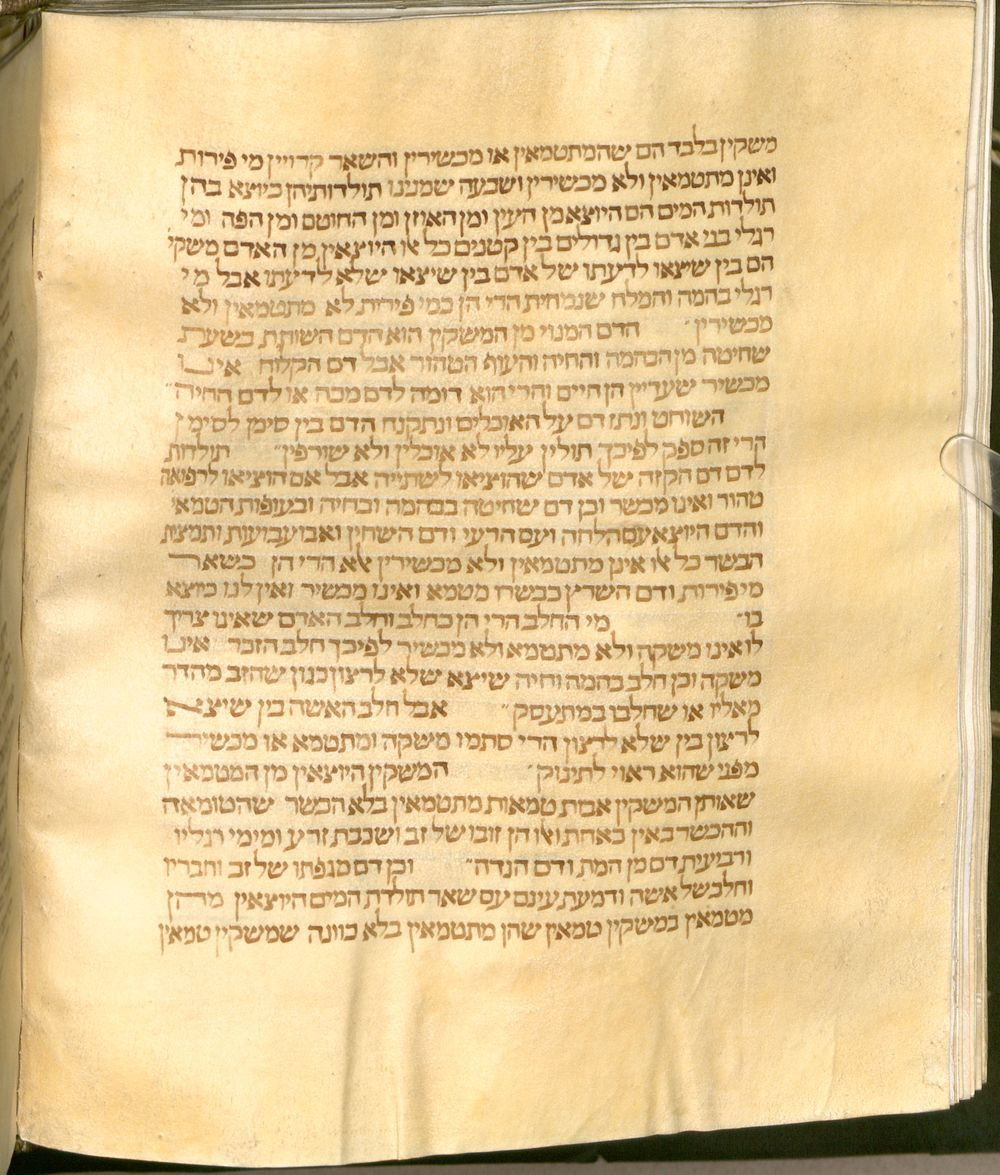 משקין בלבד הם שהמתטמאין או מכשירין והשאר קרויין מי פירות
ואינן מתטמאין ולא מכשירין ושבעה שמנינו תולדותיהן כיוצא בהן
תולדות המים הם היוצא מן העין ומן האוזן ומן החוטם ומן הפה ומי
רגלי בני אדם בין גדולים בין קטנים כל אלו היוצאין מן האדם משקי
הם בין שיצאו לדעתו של אדם בין שיצאו שלא לדעתו אבל מי
רגלי בהמה והמלח שנמחית הרי הן כמי פירות לא מתטמאין ולא
מכשירין״ הדם המנוי מן המשקין הוא הדם השותת בשעת
שחיטה מן הבהמה והחיה והעוף הטהור אבל דם הקלוח אינו
מכשיר שעדיין הן חיים והרי הוא דומה לדם מכה או לדם החיה״
השוחט ונתז דם על האוכלים ונתקנח הדם בין סימן לסימן
הרי זה ספק לפיכך תולין עליו לא אוכלין ולא שורפין״ תולדות
לדם דם הקזה של אדם שהוציאו לשתייה אבל אם הוציאו לרפואה
טהור ואינו מכשר וכן דם שחיטה בבהמה ובחיה ובעופות הטמאי
והדם היוצא עם הלחה ועם הרעי ודם השחין ואבועבועות ותמצית
הבשר כל אלו אינן מתטמאין ולא מכשירין אלא הרי הן כשאר
מי פירות ודם השרץ כבשרו מטמא ואינו מכשיר ואין לנו כיוצא
בו״ מי החלב הרי הן כחלב וחלב האדם שאינו צריך
לו אינו משקה ולא מתטמא ולא מכשיר לפיכך חלב הזכר אינו
משקה וכן חלב בהמה וחיה שיצא שלא לרצון כגון שהזב מהדד
מאליו או שחלבו במתעסק״ אבל חלב האשה בין שיצא
לרצון בין שלא לרצון הרי סתמו משקה ומתטמא או מכשיר
מפני שהוא ראוי לתינוק״ המשקין היוצאין מן המטמאין
שאותן המשקין אבות טמאות מתטמאין בלא הכשר שהטומאה
וההכשר באין כאחת ואלו הן זובו של זב ושכבת זרע ומימי רגליו
ורביעית דם מן המת ודם הנדה״ וכן דם מגפתו של זב וחבריו
וחלב של אשה ודמעת עינם עם שאר תולדת המים היוצאין מהן
מטמאין כמשקין טמאין שהן מתטמאין בלא כוונה שמשקין טמאין